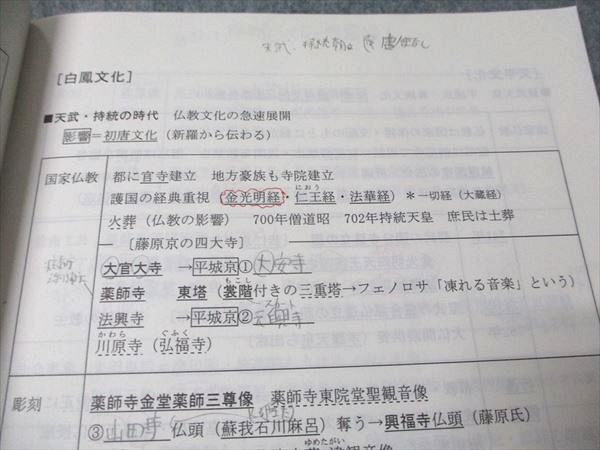 天武・持統朝は 遣唐使なし
[白鳳文化]
■天武・持統の時代　仏教文化の急速展開
影響＝初唐文化（新羅から伝わる）
国家仏教　都に官寺建立　地方豪族も寺院建立
護国の経典重視（金光明経・仁王経・法華経）＊一切経（大蔵経）
におう
火葬（仏教の影響）　700年僧道昭　702年持統天皇　庶民は土葬
〔藤原京の四大寺〕
大官大寺　→平城京①大安寺
もこし
薬師寺　東塔（裳階付きの三重塔→フェノロサ「凍れる音楽」という）
法興寺　→平城京②元興寺
かわら　ぐふく
川原寺（弘福寺）
彫刻　薬師寺金堂薬師三尊像　薬師寺東院堂聖観音像
③山田寺 仏頭（蘇我石川麻呂）奪う→興福寺仏頭（藤原氏）
ゆめたがい
観音像